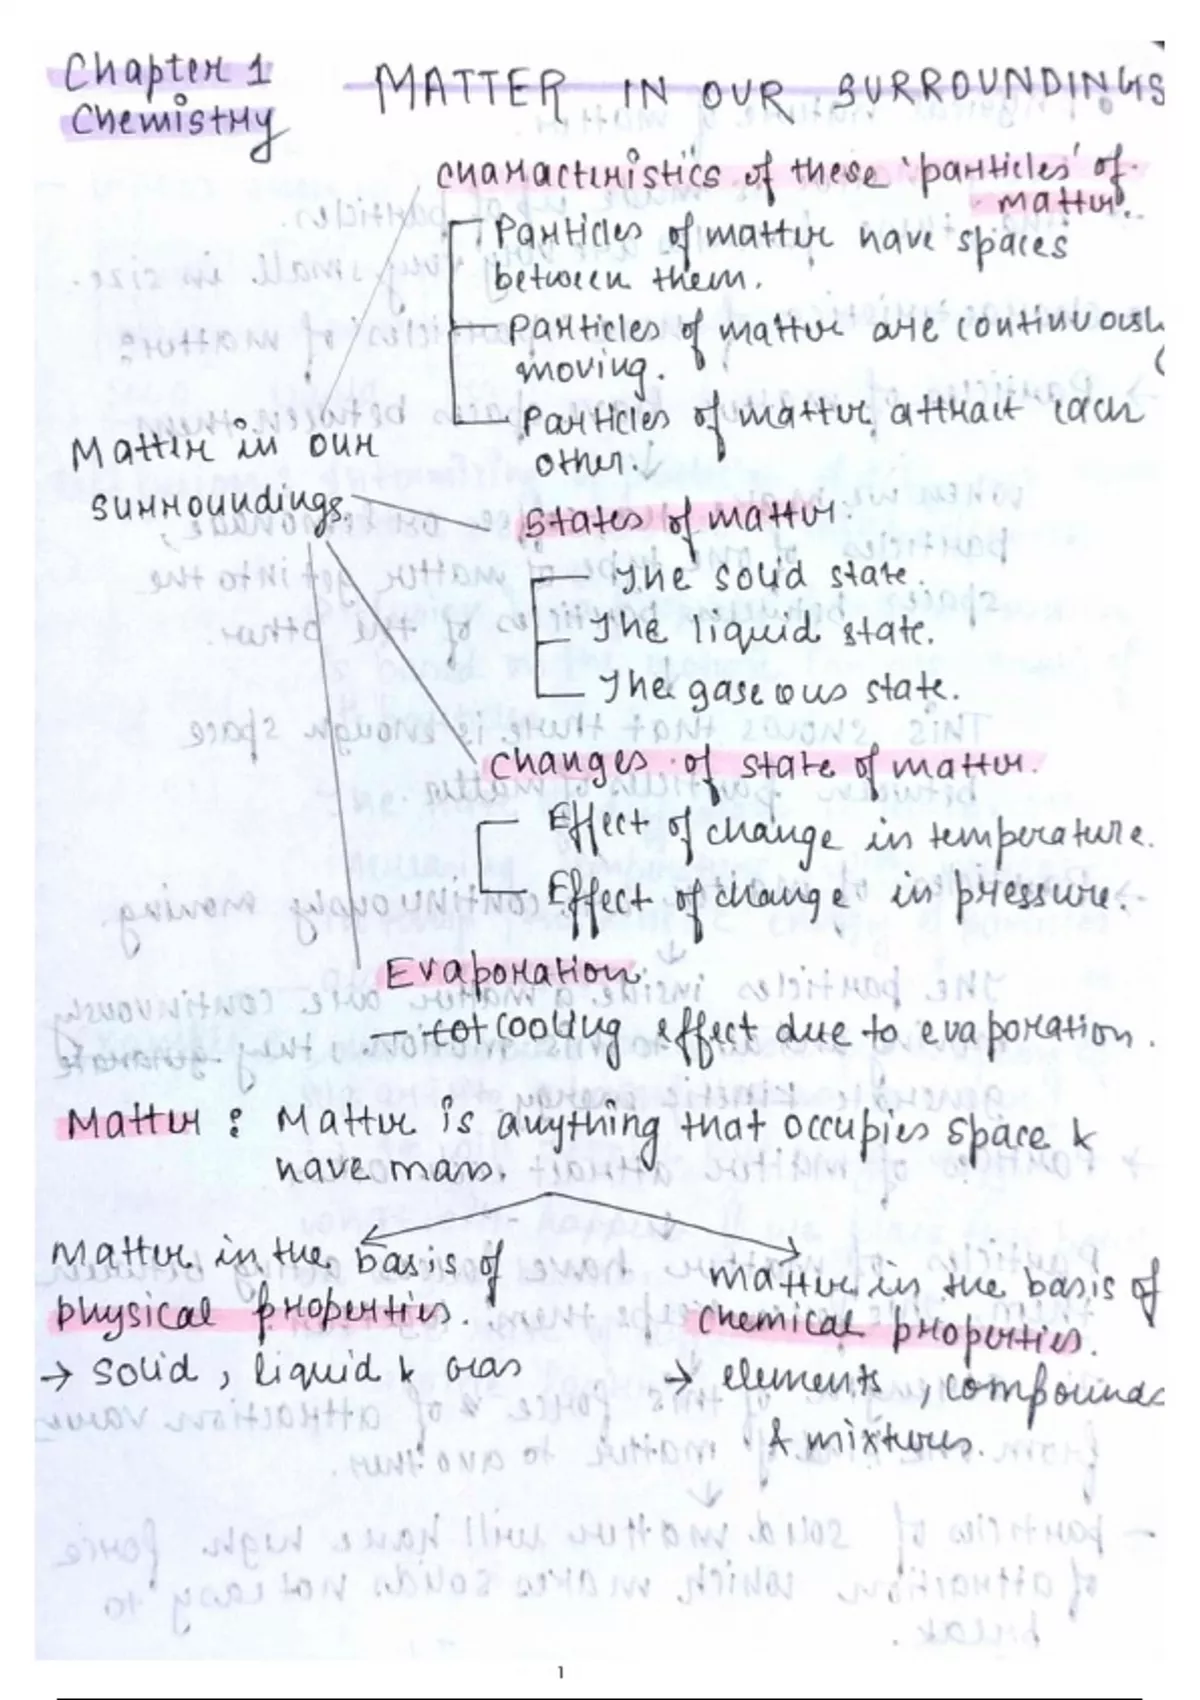 Chapter 1
Chemistry
MATTER IN OUR SURROUNDINGS
Characteristics of these 'particles' of
matter.
Particles of matter have spaces
between them.
Particles of matter are continuously
moving.
Particles of matter attract each
other.
Matter in our
surroundings
States of matter.
The solid state.
The liquid state.
The gaseous state.
Changes of state of matter.
Effect of change in temperature.
Effect of change in pressure.
Evaporation.
— cooling effect due to evaporation.
Matter : Matter is anything that occupies space &
have mass.
Matter in the basis of
physical properties.
→ solid, liquid & gas
Matter in the basis of
chemical properties.
→ elements, compounds
& mixtures.
1